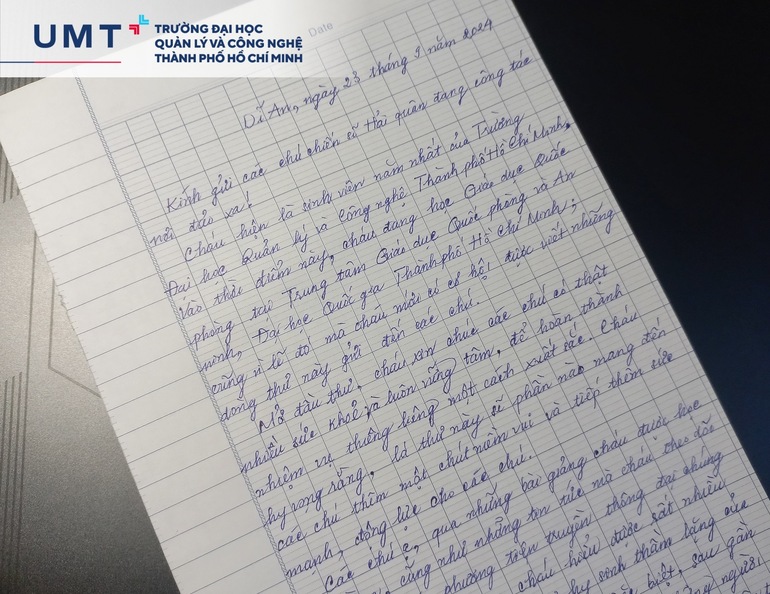 UMT
TRƯỜNG ĐẠI HỌC
QUẢN LÝ VÀ CÔNG NGHỆ
THÀNH PHỐ HỒ CHÍ MINH
Date
Dĩ An, ngày 23 tháng 9 năm 2024
Kính gửi các chú chiến sĩ Hải quân đang công tác
nơi đảo xa!
Cháu hiện là sinh viên năm nhất của Trường
Đại học Quản lý và Công nghệ Thành phố Hồ Chí Minh,
vào thời điểm này, cháu đang học Giáo dục Quốc
phòng tại Trung tâm Giáo dục Quốc phòng và An
ninh, Đại học Quốc gia Thành phố Hồ Chí Minh;
cũng vì lẽ đó mà cháu mới có cơ hội được viết những
dòng thư này gửi đến các chú.
Mở đầu thư, cháu xin chúc các chú có thật
nhiều sức khoẻ và luôn vững tâm, để hoàn thành
nhiệm vụ thiêng liêng một cách xuất sắc. Cháu
hy vọng rằng, lá thư này sẽ phần nào mang đến
các chú thêm một chút niềm vui và tiếp thêm sức
mạnh, động lực cho các chú.
Các chú ạ, qua những bài giảng cháu được học
cũng như những tin tức mà cháu theo dõi
phương tiện truyền thông đại chúng
cháu hiểu được rất nhiều
hy sinh thầm lặng của
biệt, sau gần
người